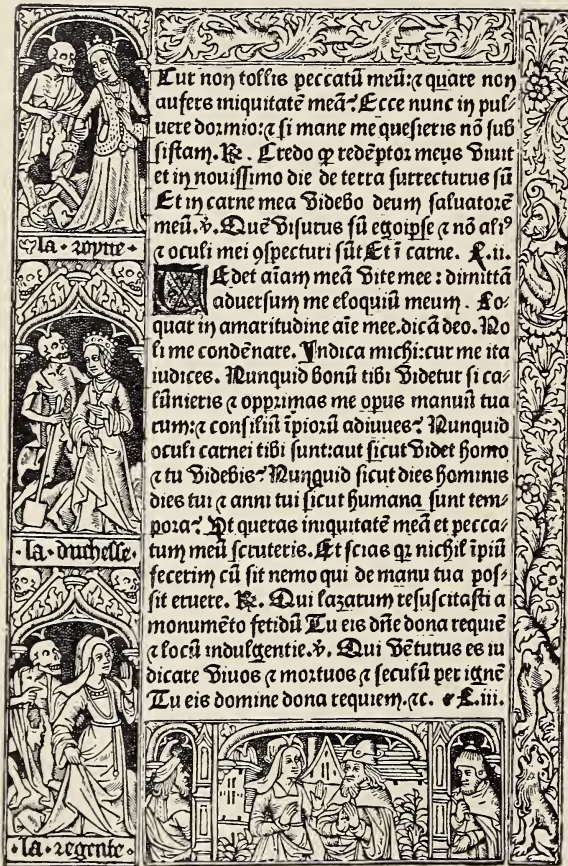 Cur non tollis peccatū meū: ⁊ quare non
aufers iniquitatē meā? Ecce nunc in pul⸗
uere dormio: ⁊ si mane me quesieris nō sub
sistam. ℟. Credo ꝙ redēptor meus viuit
et in nouissimo die de terra surrecturus sū
Et in carne mea videbo deum saluatorē
meū. ℣. Quē visurus sū egoipse ⁊ nō aliꝰ
⁊ oculi mei ꝯspecturi sūt Et ī carne. L.ii.
Tedet aīam meā vite mee: dimittā
aduersum me eloquiū meum. Lo⸗
quar in amaritudine aīe mee. dicā deo. No
li me condēnare. Indica michi: cur me ita
iudices. Nunquid bonū tibi videtur si ca⸗
lūnieris ⁊ opprimas me opus manuū tua
rum: ⁊ consiliū īpiorū adiuues? Nunquid
oculi carnei tibi sunt: aut sicut videt homo
⁊ tu videbis? Nunquid sicut dies hominis
dies tui ⁊ anni tui sicut humana sunt tem⸗
pora? Vt queras iniquitatē meā et pecca⸗
tum meū scruteris. Et scias qꝛ nichil īpiū
fecerim cū sit nemo qui de manu tua pos⸗
sit eruere. ℟. Qui lazarum resuscitasti a
monumēto fetidū Tu eis dn̄e dona requiē
⁊ locū indulgentie. ℣. Qui vēturus es iu
dicare viuos ⁊ mortuos ⁊ seculū per ignē
Tu eis domine dona requiem. ⁊c. L.iii.
la royne
la duchesse
la regente